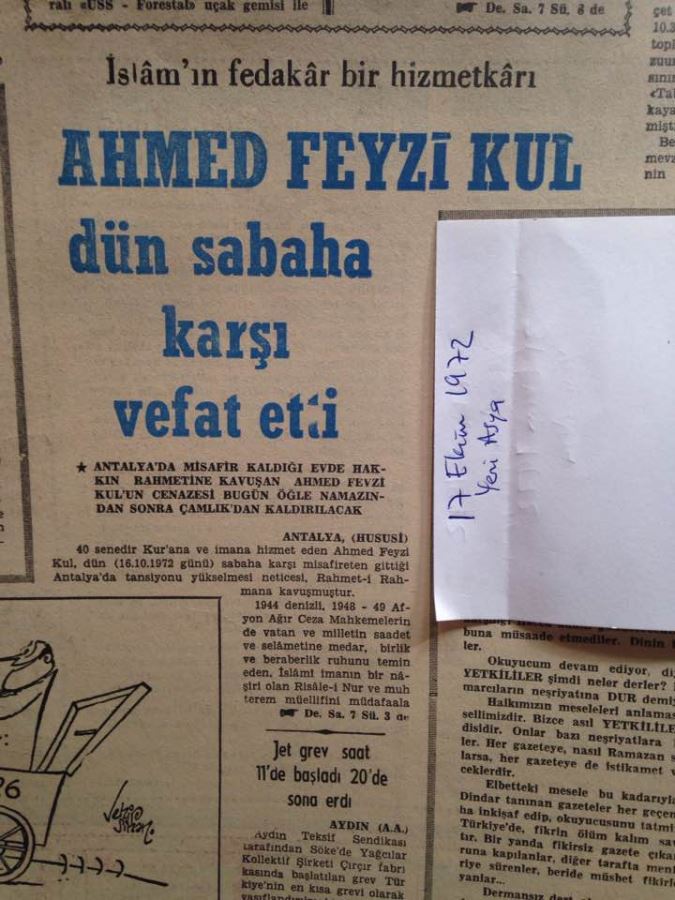 ralı «USS - Forestal» uçak gemisi ile
De. Sa. 7 Sü. 8 de
İslâm'ın fedakâr bir hizmetkârı
AHMED FEYZİ KUL
dün sabaha
karşı
vefat etti
★ ANTALYA'DA MİSAFİR KALDIĞI EVDE HAK-
KIN RAHMETİNE KAVUŞAN AHMED FEVZİ
KUL'UN CENAZESİ BUGÜN ÖĞLE NAMAZIN-
DAN SONRA ÇAMLIK'DAN KALDIRILACAK
ANTALYA, (HUSUSİ)
40 senedir Kur'ana ve imana hizmet eden Ahmed Feyzi
Kul, dün (16.10.1972 günü) sabaha karşı misafireten gittiği
Antalya'da tansiyonu yükselmesi neticesi, Rahmet-i Rah-
mana kavuşmuştur.
1944 denizli, 1948 - 49 Af-
yon Ağır Ceza Mahkemelerin
de vatan ve milletin saadet
ve selâmetine medar, birlik
ve beraberlik ruhunu temin
eden, İslâmî imanın bir nâ-
şiri olan Risâle-i Nur ve muh
terem müellifini müdafaala
De. Sa. 7 Sü. 3 de
Jet grev saat
11'de başladı 20'de
sona erdi
AYDIN (A.A.)
Aydın Teksif Sendikası
tarafından Söke'de Yağcılar
Kollektif Şirketi Çırçır fabri
kasında başlatılan grev Tür
kiye'nin en kısa grevi olarak
17 Ekim 1972
Yeni Asya
çet
10.3
topl
zuur
sını
«Tal
kaya
mişt
Be
mevz
nin
buna müsaade etmediler. Dinin
ler.
Okuyucum devam ediyor, di
YETKİLİLER şimdi neler derler?
marcıların neşriyatına DUR demiy
Halkımızın meseleleri anlamas
sellimizdi. Bizce asıl YETKİLİLE
disidir. Onlar bazı neşriyatlara
ler. Her gazeteye, nasıl Ramazan s
larsa, her gazeteye de istikamet v
ceklerdir.
Elbetteki mesele bu kadarıyla
Dindar tanınan gazeteler her geçen
ha inkişaf edip, okuyucusunu tatmi
Türkiye'de, fikrin ölüm kalım sav
tır. Bir yanda fikirsiz gazete çıkar
runa kapılanlar, diğer tarafta meni
riye sürenler, beride müsbet fikirle
yanlar...